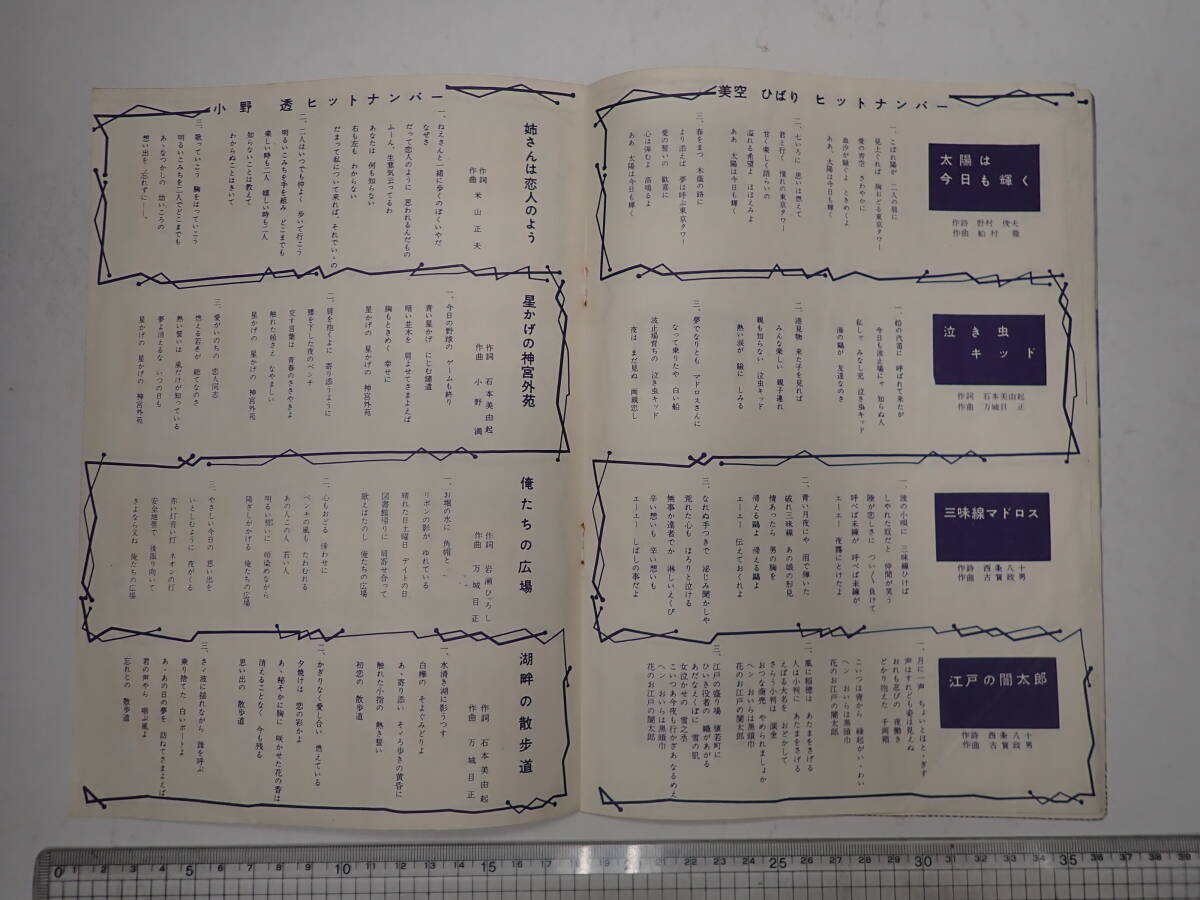 美空 ひばり ヒットナンバー
太陽は
今日も輝く
作詩 野村 俊夫
作曲 船村 徹
一、こぼれ陽が 二人の肩に
見上ぐれば 胸おどる東京タワー
愛の青空 さわやかに
血汐が騒ぐよ ときめくよ
ああ、太陽は今日も輝く
二、七いろに 思いは燃えて
君と行く 憧れの東京タワー
甘く楽しく語らいの
溢れる希望よ ほほえみよ
ああ 太陽は今日も輝く
三、春をまつ 木蔭の路に
より添えば 夢は呼ぶ東京タワー
愛の誓いの 歓喜に
心は弾むよ 高鳴るよ
ああ 太陽は今日も輝く
泣き虫
キッド
作詞 石本美由起
作曲 万城目 正
一、船の汽笛に 呼ばれて来たが
今日も波止場にゃ 知らぬ人
私しゃ みなし児 泣き虫キッド
海の鴎が 友達なのさ
二、港見物 来た子を見れば
みんな楽しい 親子連れ
親も知らない 泣虫キッド
熱い涙が 瞼に しみる
三、夢でなりとも マドロスさんに
なって乗りたや 白い船
波止場育ちの 泣き虫キッド
夜は まだ見ぬ 両親恋し
三味線マドロス
作詩 西条八十
作曲 古賀政男
一、波の小唄に 三味線ひけば
しやれた奴だと 仲間が笑う
陸が恋しさに つい〱負けて
呼べば未練が 呼べば未練が
エーエー 夜霧にとけたよ
二、青い月夜にや 泪で弾いた
破れ三味線 あの娘の形見
情あったら 男の胸を
帰える鴎よ 帰える鴎よ
エーエー 伝えておくれよ
三、なれぬ手つきで 泌じみ聞かしや
荒れた心も ほろりと泣ける
無事か達者でか 淋しいえくぼ
辛い想いも 辛い想いも
エーエー しばしの事だよ
江戸の闇太郎
作詩 西条八十
作曲 古賀政男
一、月に一声 ちょいとほと、ぎす
声はすれども姿は見えぬ
おれも忍びの 夜働き
どっかり抱えた 千両箱
こいつは宵から 縁起がい、わい
ヘン おいらは黒頭巾
花のお江戸の闇太郎
二、風に稲穂は あたまをさげる
人は小判に あたまをさげる
えばる大名を おどかして
さらう小判は 涙金
おつな商売 やめられましょか
ヘン おいらは黒頭巾
花のお江戸の闇太郎
三、江戸の盛り場 猿若町に
ひいき役者の 幟があがる
あだなえくぼに 雪の肌
女泣かせの 雪之丞
こいつあ今夜も行かざあなるめえ
ヘン おいらは黒頭巾
花のお江戸の闇太郎
小野 透ヒットナンバー
姉さんは恋人のよう
作詞
作曲 米山正夫
一、ねえさんと一緒に歩くのぼくいやだ
なぜさ
だって恋人のように 思われるんだもの
ふーん、生意気云ってるわ
あなたは 何も知らない
右も左も わからない
だまって私について来れば、それでい、の
二、二人はいつでも仲よく 歩いて行こう
明るいこみちを手を組み どこまでも
楽しい時も二人 嬉しい時も二人
知らないことは教えて
わからぬことはきいて
三、歌っていこう 胸をはっていこう
明るいこみちを二人でどこまでも
あ、なつかしの 幼いころの
想い出を 忘れずに――。
星かげの神宮外苑
作詞 石本美由起
作曲 小野 満
一、今日の野球の ゲームも終り
青い星かげ にじむ舗道
暗い並木を 肩よせてさまよえば
胸もときめく 幸せに
星かげの 星かげの 神宮外苑
二、肩を抱くよに 寄り添うように
腰を下した夜のベンチ
交す言葉は 青春のささやきよ
触れた髪さえ なやましい
星かげの 星かげの 神宮外苑
三、愛がいのちの 恋人同志
燃える若さが 総てなのさ
熱い誓いは 風だけが知っている
夢よ消えるな いつの日も
星かげの 星かげの 神宮外苑
俺たちの広場
作詞 岩瀬ひろし
作曲 万城目正
一、お堀の水に 角帽と
リボンの影が ゆれている
晴れた日土曜日 デイトの日
図書館帰りに 肩寄せ合って
歌えばたのし 俺たちの広場
二、心もおどる 倖わせに
ベンチの風も たわむれる
あの人この人 若い人
明るい想いに 頬染めながら
陽ざしがかげる 俺たちの広場
三、やさしい今日の 思い出を
いとしむように 夜がくる
赤い灯青い灯 ネオンの灯
安全地帯で 後振り向いて
さよなら又ね 俺たちの広場
湖畔の散歩道
作詞 石本美由起
作曲 万城目正
一、水清き湖に影うつす
白樺の そよぐみどりよ
あ、寄り添い そゞろ歩きの黄昏に
触れた小指の 熱き誓い
初恋の 散歩道
二、かぎりなく愛し合い 燃えている
夕焼けは 恋の彩かよ
あ、秘そかに胸に 咲かせた花の香は
消えることなく 今も残る
思い出の 散歩道
三、さゞ波に揺れながら 誰を呼ぶ
乗り捨てた 白いボートよ
あ、あの日の夢を 訪ねてさまよえば
君の声やら 囁ぶ風よ
忘れじの 散歩道
0 1 2 3 4 5 6 7 8 9 10 11 12 13 14 15 16 17 18 19 20 21 22 23 24 25 26 27 28 29 30 31 32 33 34 35 36 37 38 39